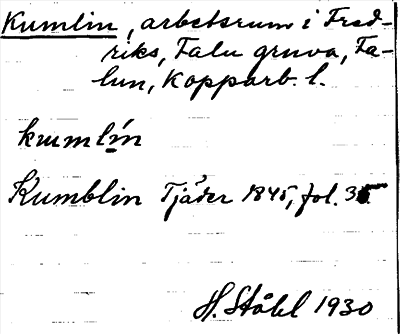 Kumlin, arbetsrum i Fred-
riks, Falu gruva, Fa-
lun, Kopparb. l.
kummlín
Kumblin Tjäder 1845, fol. 35
H. Ståhl 1930